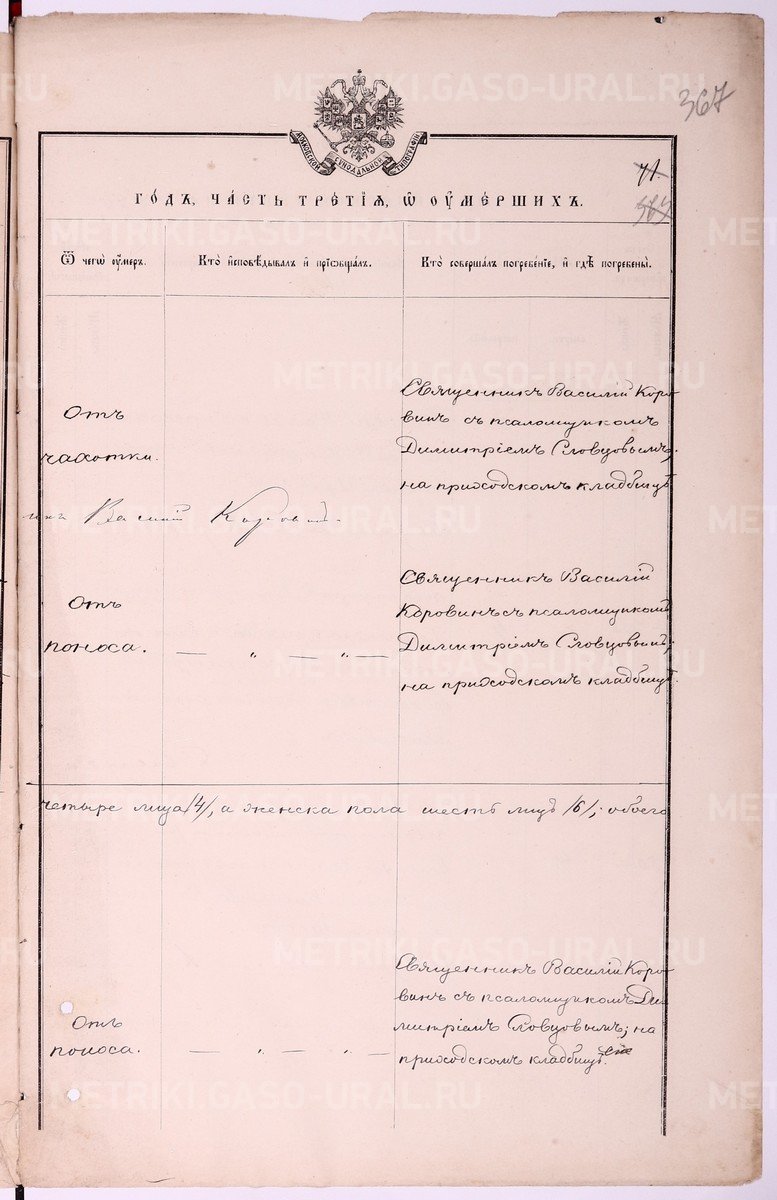 METRIKI.GASO-URAL.RU
367
МОСКОВСКОЙ СѴНОДАЛЬНОЙ ТИПОГРАФІИ
71.
367
ГО́ДЪ, ЧА́СТЬ ТРЕ́ТІѦ, Ѽ ОУМЕ́РШИХЪ.
Ѿ чегѡ̀ оу́меръ.
Кто̀ и҆сповѣ́дывалъ и҆ прїѡбща́лъ.
Кто̀ соверша́лъ погребе́нїе, и҆ гдѣ̀ погребены̀.
Отъ
чахотки.
Священникъ Василій Коро-
винъ съ псаломщикомъ
Димитріемъ Словцовымъ;
на приходскомъ кладбищѣ
Василій Коровинъ.
Отъ
поноса.
— „ — „ —
Священникъ Василій
Коровинъ съ псаломщикомъ
Димитріемъ Словцовымъ;
на приходскомъ кладбищѣ.
четыре лица /4/, а женска пола шесть лицъ /6/; обоего
Отъ
поноса.
— „ — „ —
Священникъ Василій Коро-
винъ съ псаломщикомъ Ди-
митріемъ Словцовымъ; на
приходскомъ кладбищѣ.